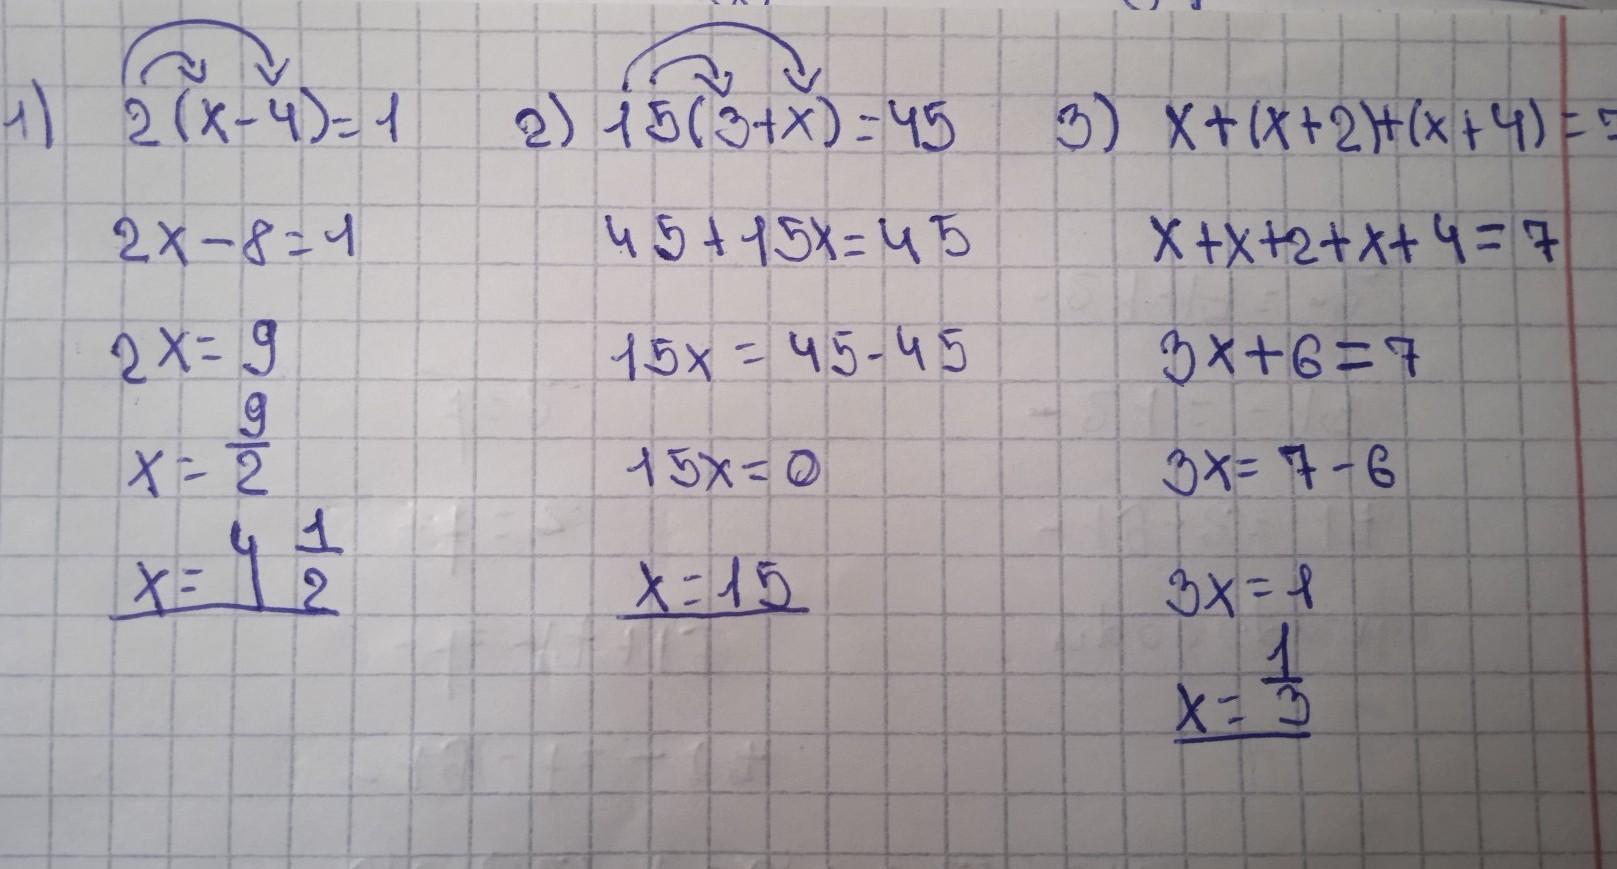 1) 2(x-4)=1
2x-8=1
2x=9
x=9/2
x=4 1/2
2) 15(3+x)=45
45+15x=45
15x=45-45
15x=0
x=15
3) x+(x+2)+(x+4)=
x+x+2+x+4=7
3x+6=7
3x=7-6
3x=1
x=1/3